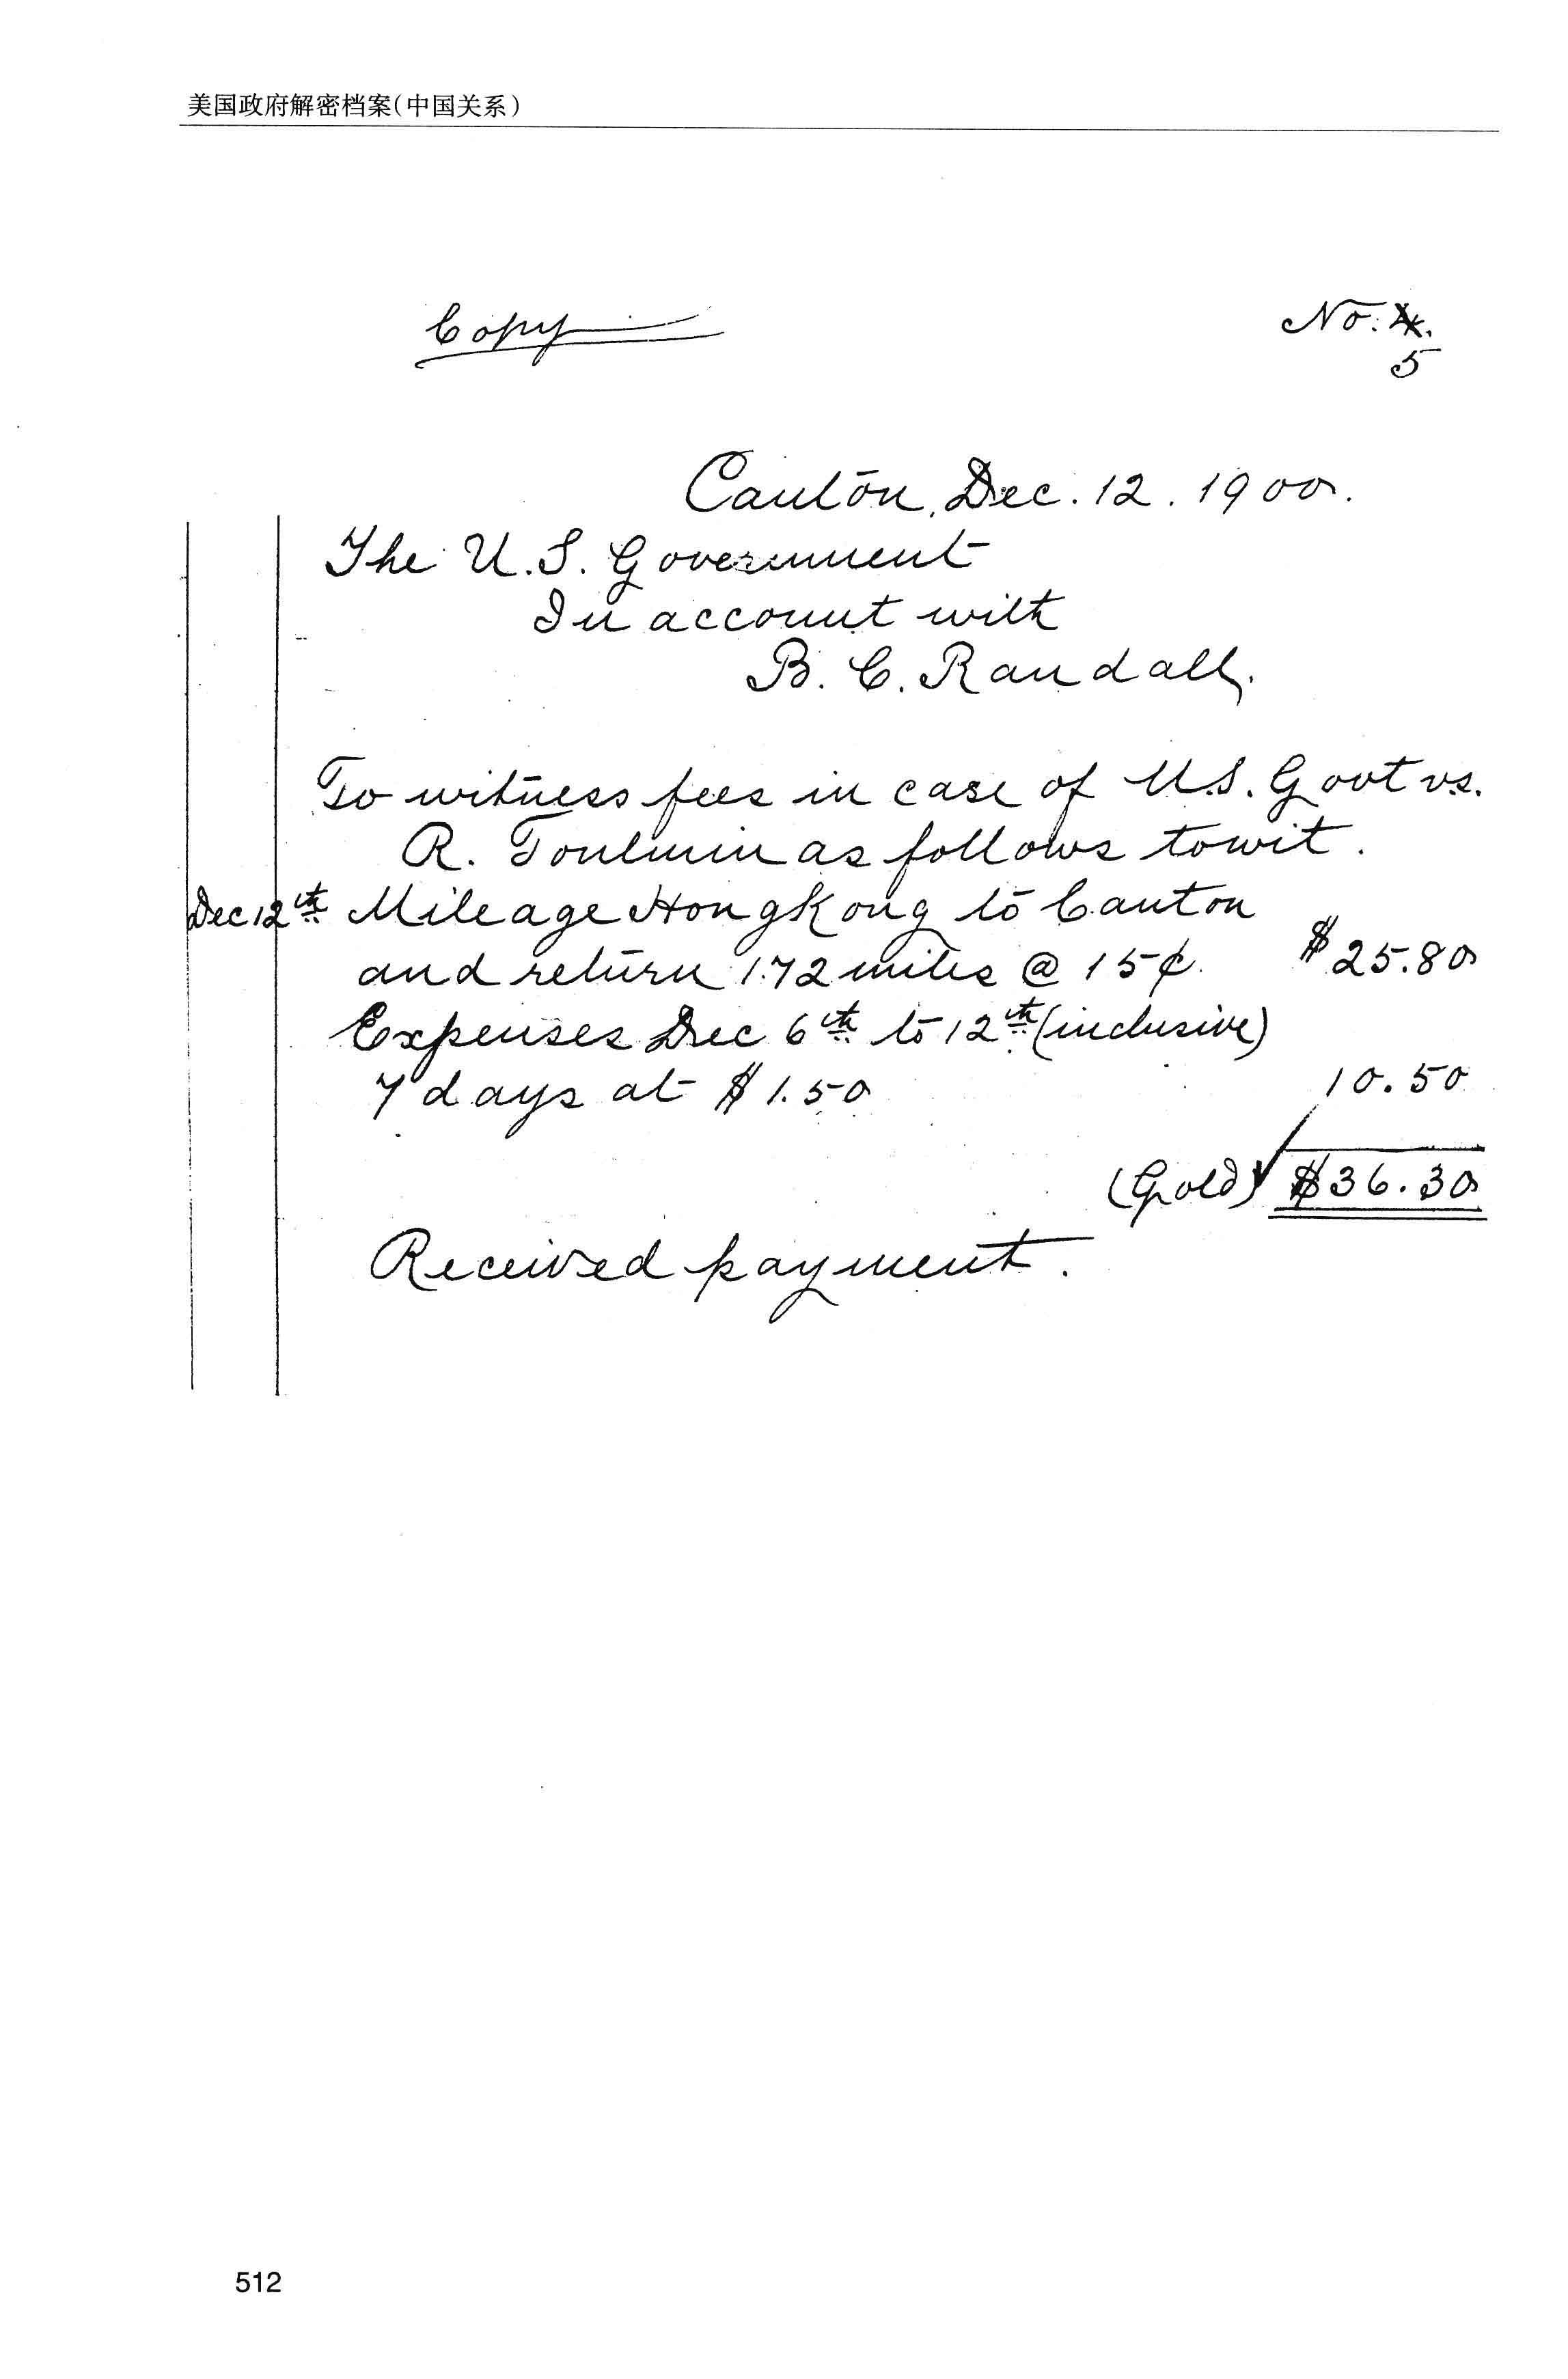 美国政府解密档案(中国关系)
Copy
No. 4.
5
Canton, Dec. 12. 1900.
The U.S. Government
In account with
B. C. Randall.
To witness fees in case of U.S. Govt vs.
R. Toulmin as follows towit.
Dec 12th Mileage HongKong to Canton
and return 172 miles @ 15¢. $25.80
Expenses Dec 6th to 12th (inclusive)
7 days at $1.50 10.50
(Gold) $36.30
Received payment.
512